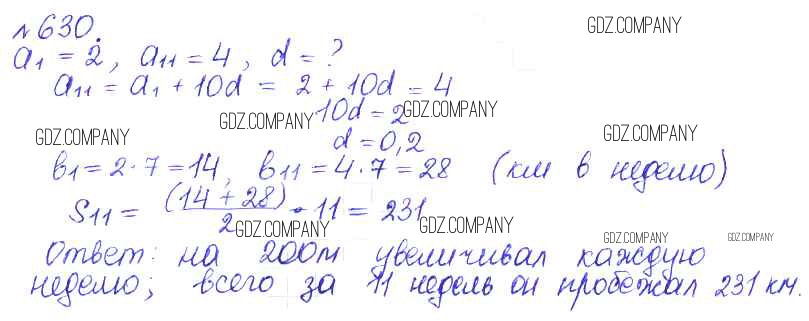 №630.
GDZ.COMPANY
a₁ = 2, a₁₁ = 4, d = ?
a₁₁ = a₁ + 10d = 2 + 10d = 4
10d = 2
GDZ.COMPANY GDZ.COMPANY GDZ.COMPANY GDZ.COMPANY
d = 0,2
b₁ = 2·7 = 14, b₁₁ = 4·7 = 28 (км в неделю)
S₁₁ = (14 + 28)/2 · 11 = 231
GDZ.COMPANY GDZ.COMPANY GDZ.COMPANY GDZ.COMPANY
Ответ: на 200м увеличивал каждую
неделю; всего за 11 недель он пробежал 231 км.